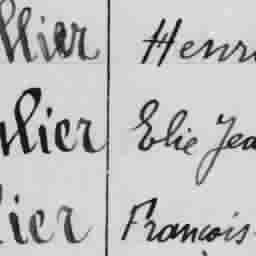 llier Henri
nlier Elie Jea
lier François-